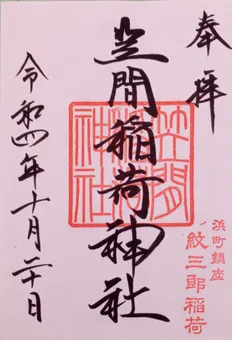 奉拝
笠間稲荷神社
笠間稲荷神社
浜町鎮座
紋三郎稲荷
令和四年十月二十日